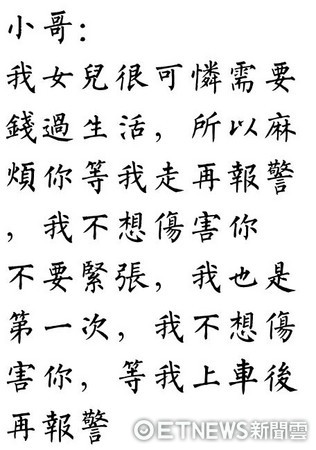 小哥：
我女兒很可憐需要
錢過生活，所以麻
煩你等我走再報警
，我不想傷害你
不要緊張，我也是
第一次，我不想傷
害你，等我上車後
再報警
ETNEWS新聞雲